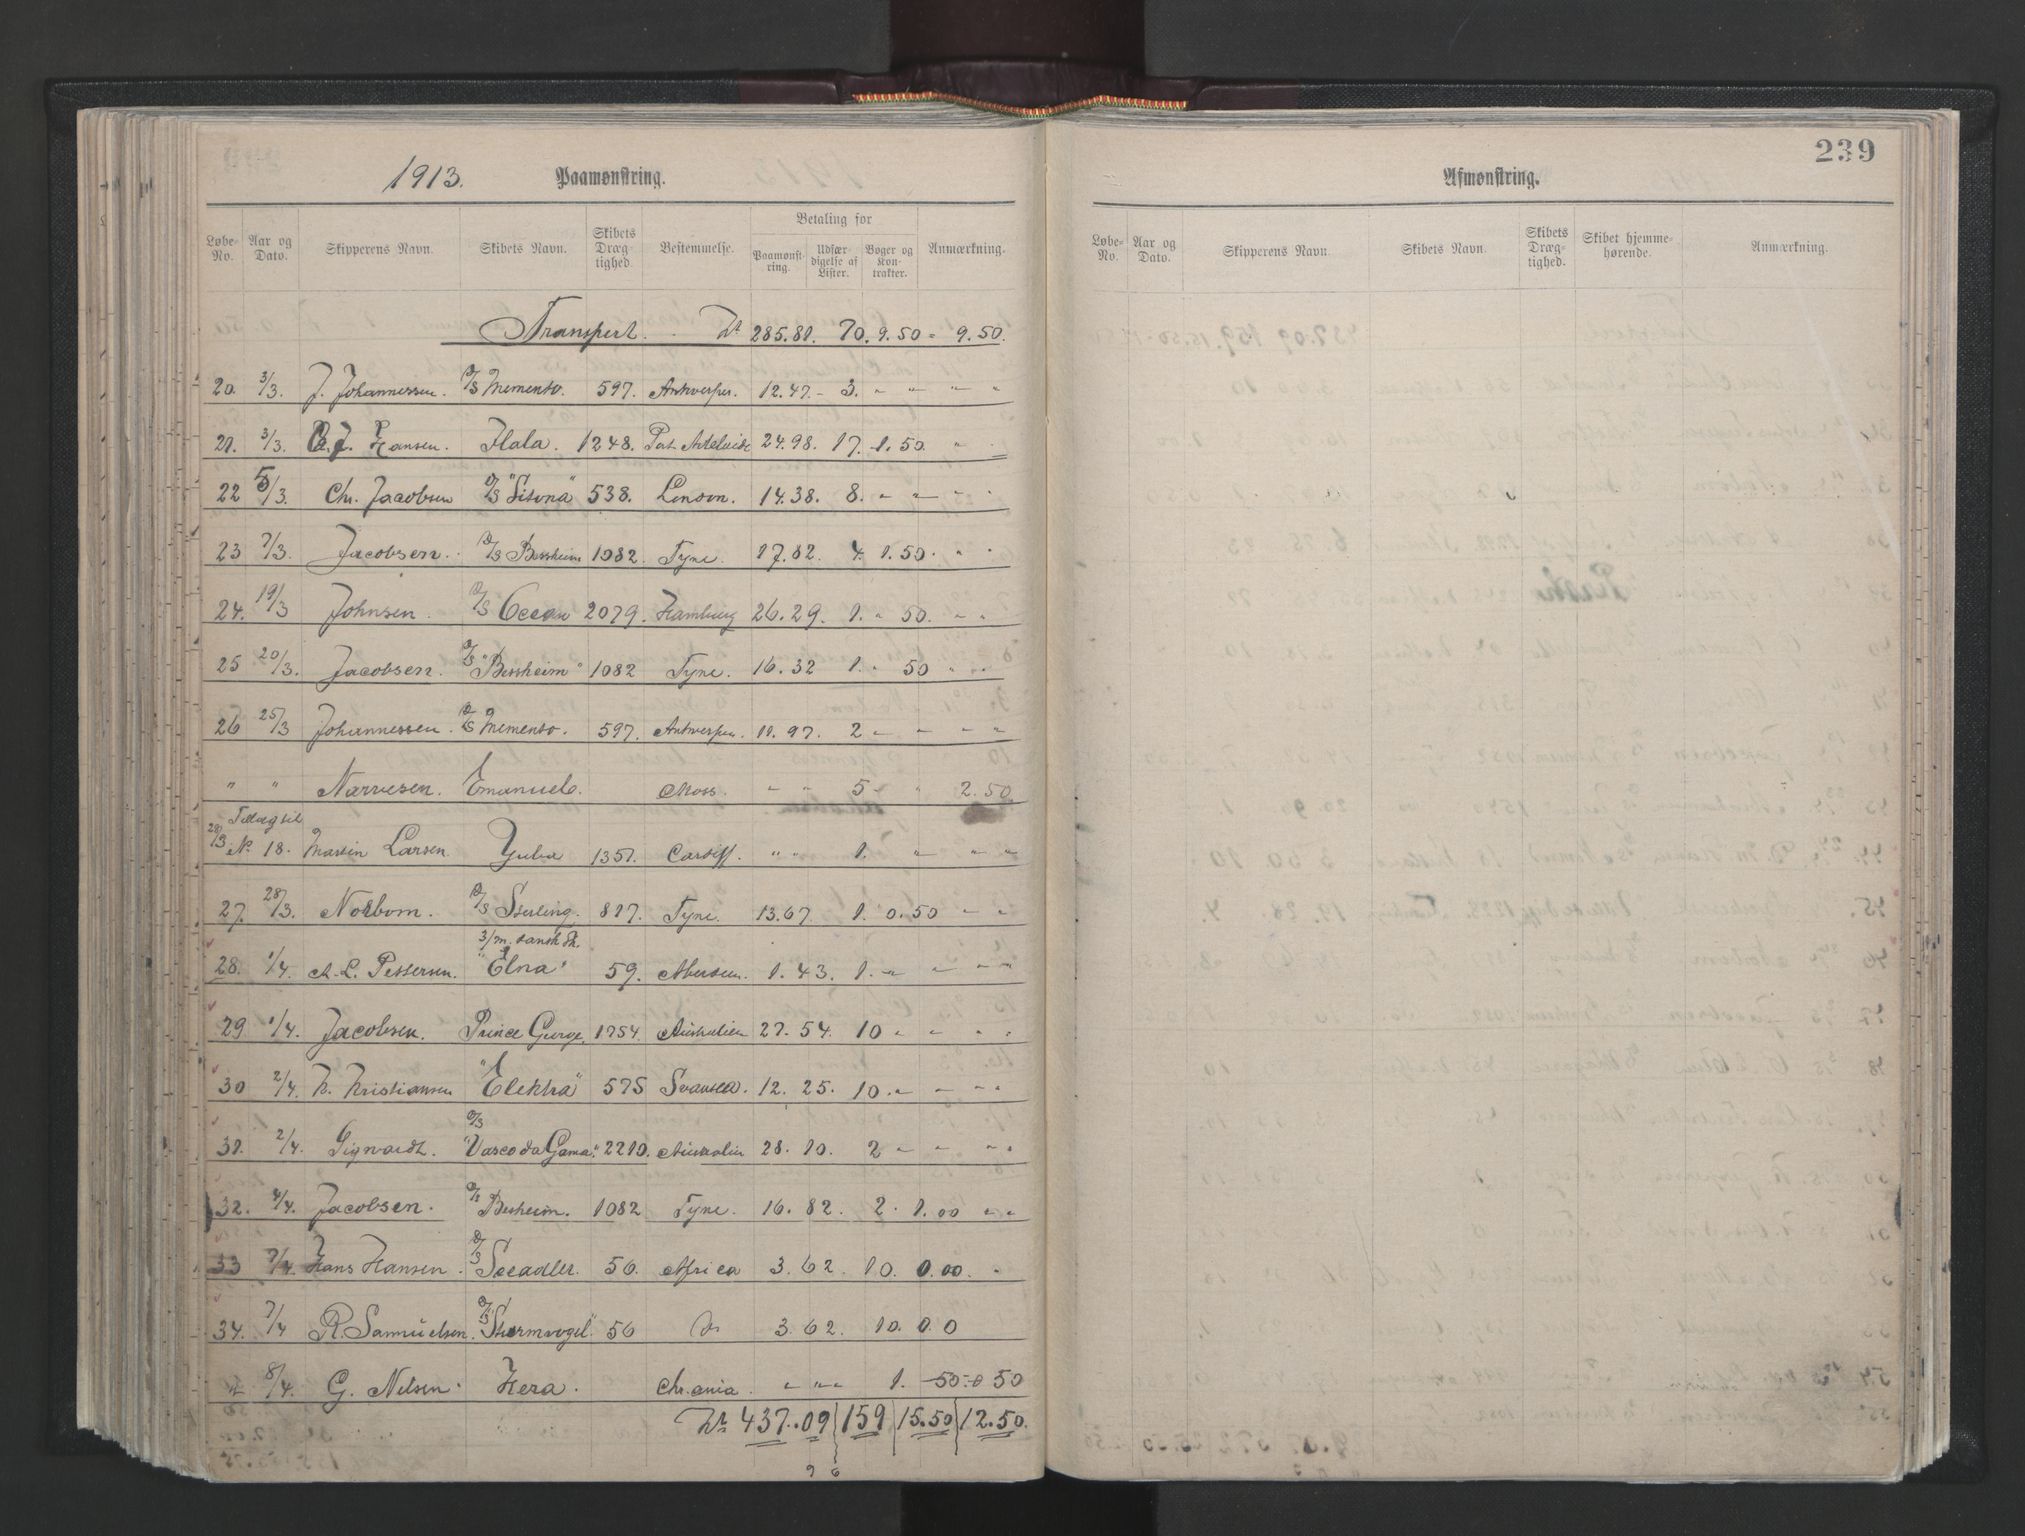 1913. Paamønstring.
Løbe-No. Aar og Dato. Skipperens Navn. Skibets Navn. Skibets Dræg-tighed. Bestemmelse. Betaling for Paamønst-ring. Udfær-digelse af Lister. Bøger og Kon-trakter. Anmærkning.
Transport. Kr 285.81. 70. 9.50 - 9.50.
20. 3/3. J. Johannessen. D/S Memento. 597. Antverpen. 12.47. - 3. " " " "
21. 3/3. J. Hansen. Flala. 1248. Port Adelaide 24.98. 17. 1.50. " -
22 5/3. Chr. Jacobsen D/S "Sitona" 538. London. 14.38. 8. " " " "
23 7/3. Jacobsen. D/S Bessheim 1082. Tyne. 17.82. 4. 1.50. " "
24. 19/3 Johnsen. D/S Ocean 2079. Hamburg 26.29. 1. " 50. " "
25 20/3. Jacobsen. D/S "Bessheim" 1082 Tyne. 16.32 1. " 50 " "
26 25/3 Johannessen. D/S Memento. 597. Antwerpen. 11.97. 2 " " " "
" " Narvesen. Emanuel. Moss. " " 5 - " 2.50.
28/3 Tillæg til No 18. Martin Larsen. Yuba 1351. Cardiff. " " 1. " " "
27. 28/3. Norbom. D/S Sterling. 817. Tyne. 13.67. 1. 0.50 " "
28. 1/4. A. L. Pettersen. 3/m. dansk Sk. "Elna" 59. Aberdeen. 1.43. 1. " " " "
29. 1/4. Jacobsen. Prince George. 1754. Australien 27.54. 10 " " " "
30 2/4. K. Kristiansen "Elektra" 575 Svansea. 12.25. 10. " " " "
31. 2/4. Sigvardt. D/S "Vasco da Gama." 2210. Australien 28.10. 2 " " " "
32. 4/4. Jacobsen. D/S Besheim. 1082 Tyne. 16.82. 2. 1.00 " "
33 7/4. Hans Hansen. D/S Seeadler. 56. Africa 3.62. 10. 0.00. "
34. 7/4 R. Samuelsen. D/S "Sturmvogel" 56 do 3.62. 10. 0.0
8/4. G. Nilsen. Hera. Chr.ania. " " " 1. -50 - 0 50
Kr 437.09 159 15.50 12.50.
9 6
239
Afmønstring.
Løbe-No. Aar og Dato. Skipperens Navn. Skibets Navn. Skibets Dræg-tighed. Skibet hjemme-hørende. Anmærkning.